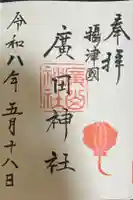 奉拝
摂津國
廣田神社
令和八年五月十八日